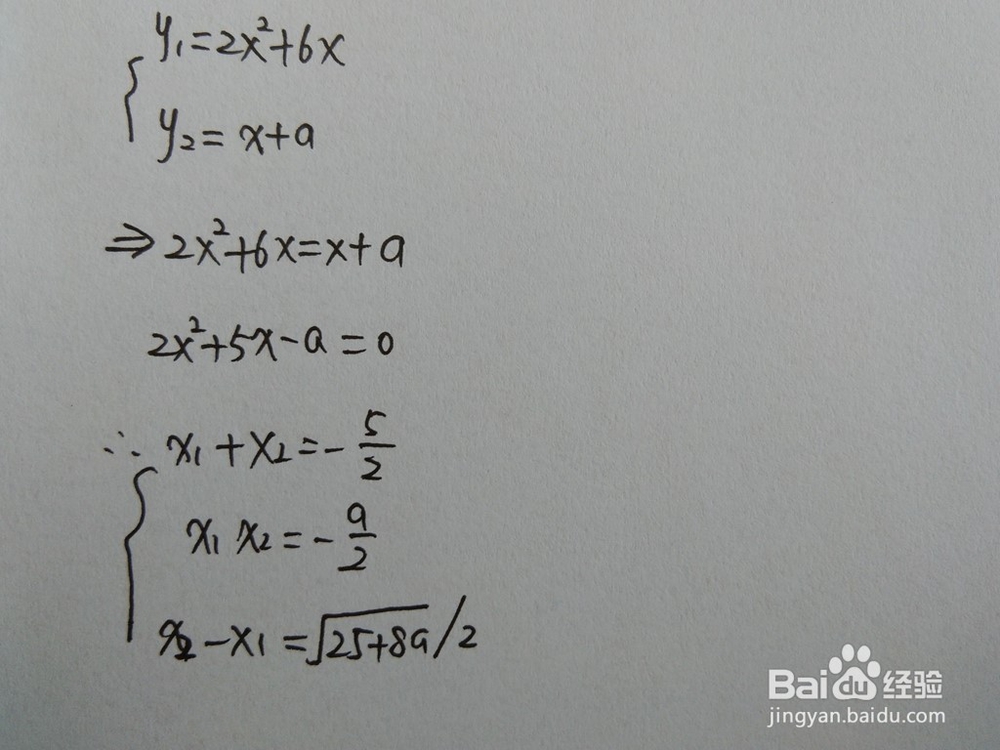 y₁=2x²+6x
y₂=x+a
⇒2x²+6x=x+a
2x²+5x-a=0
∴x₁+x₂=-5/2
x₁x₂=-a/2
x₂-x₁=√(25+8a)/2
Baidu经验
jingyan.baidu.com